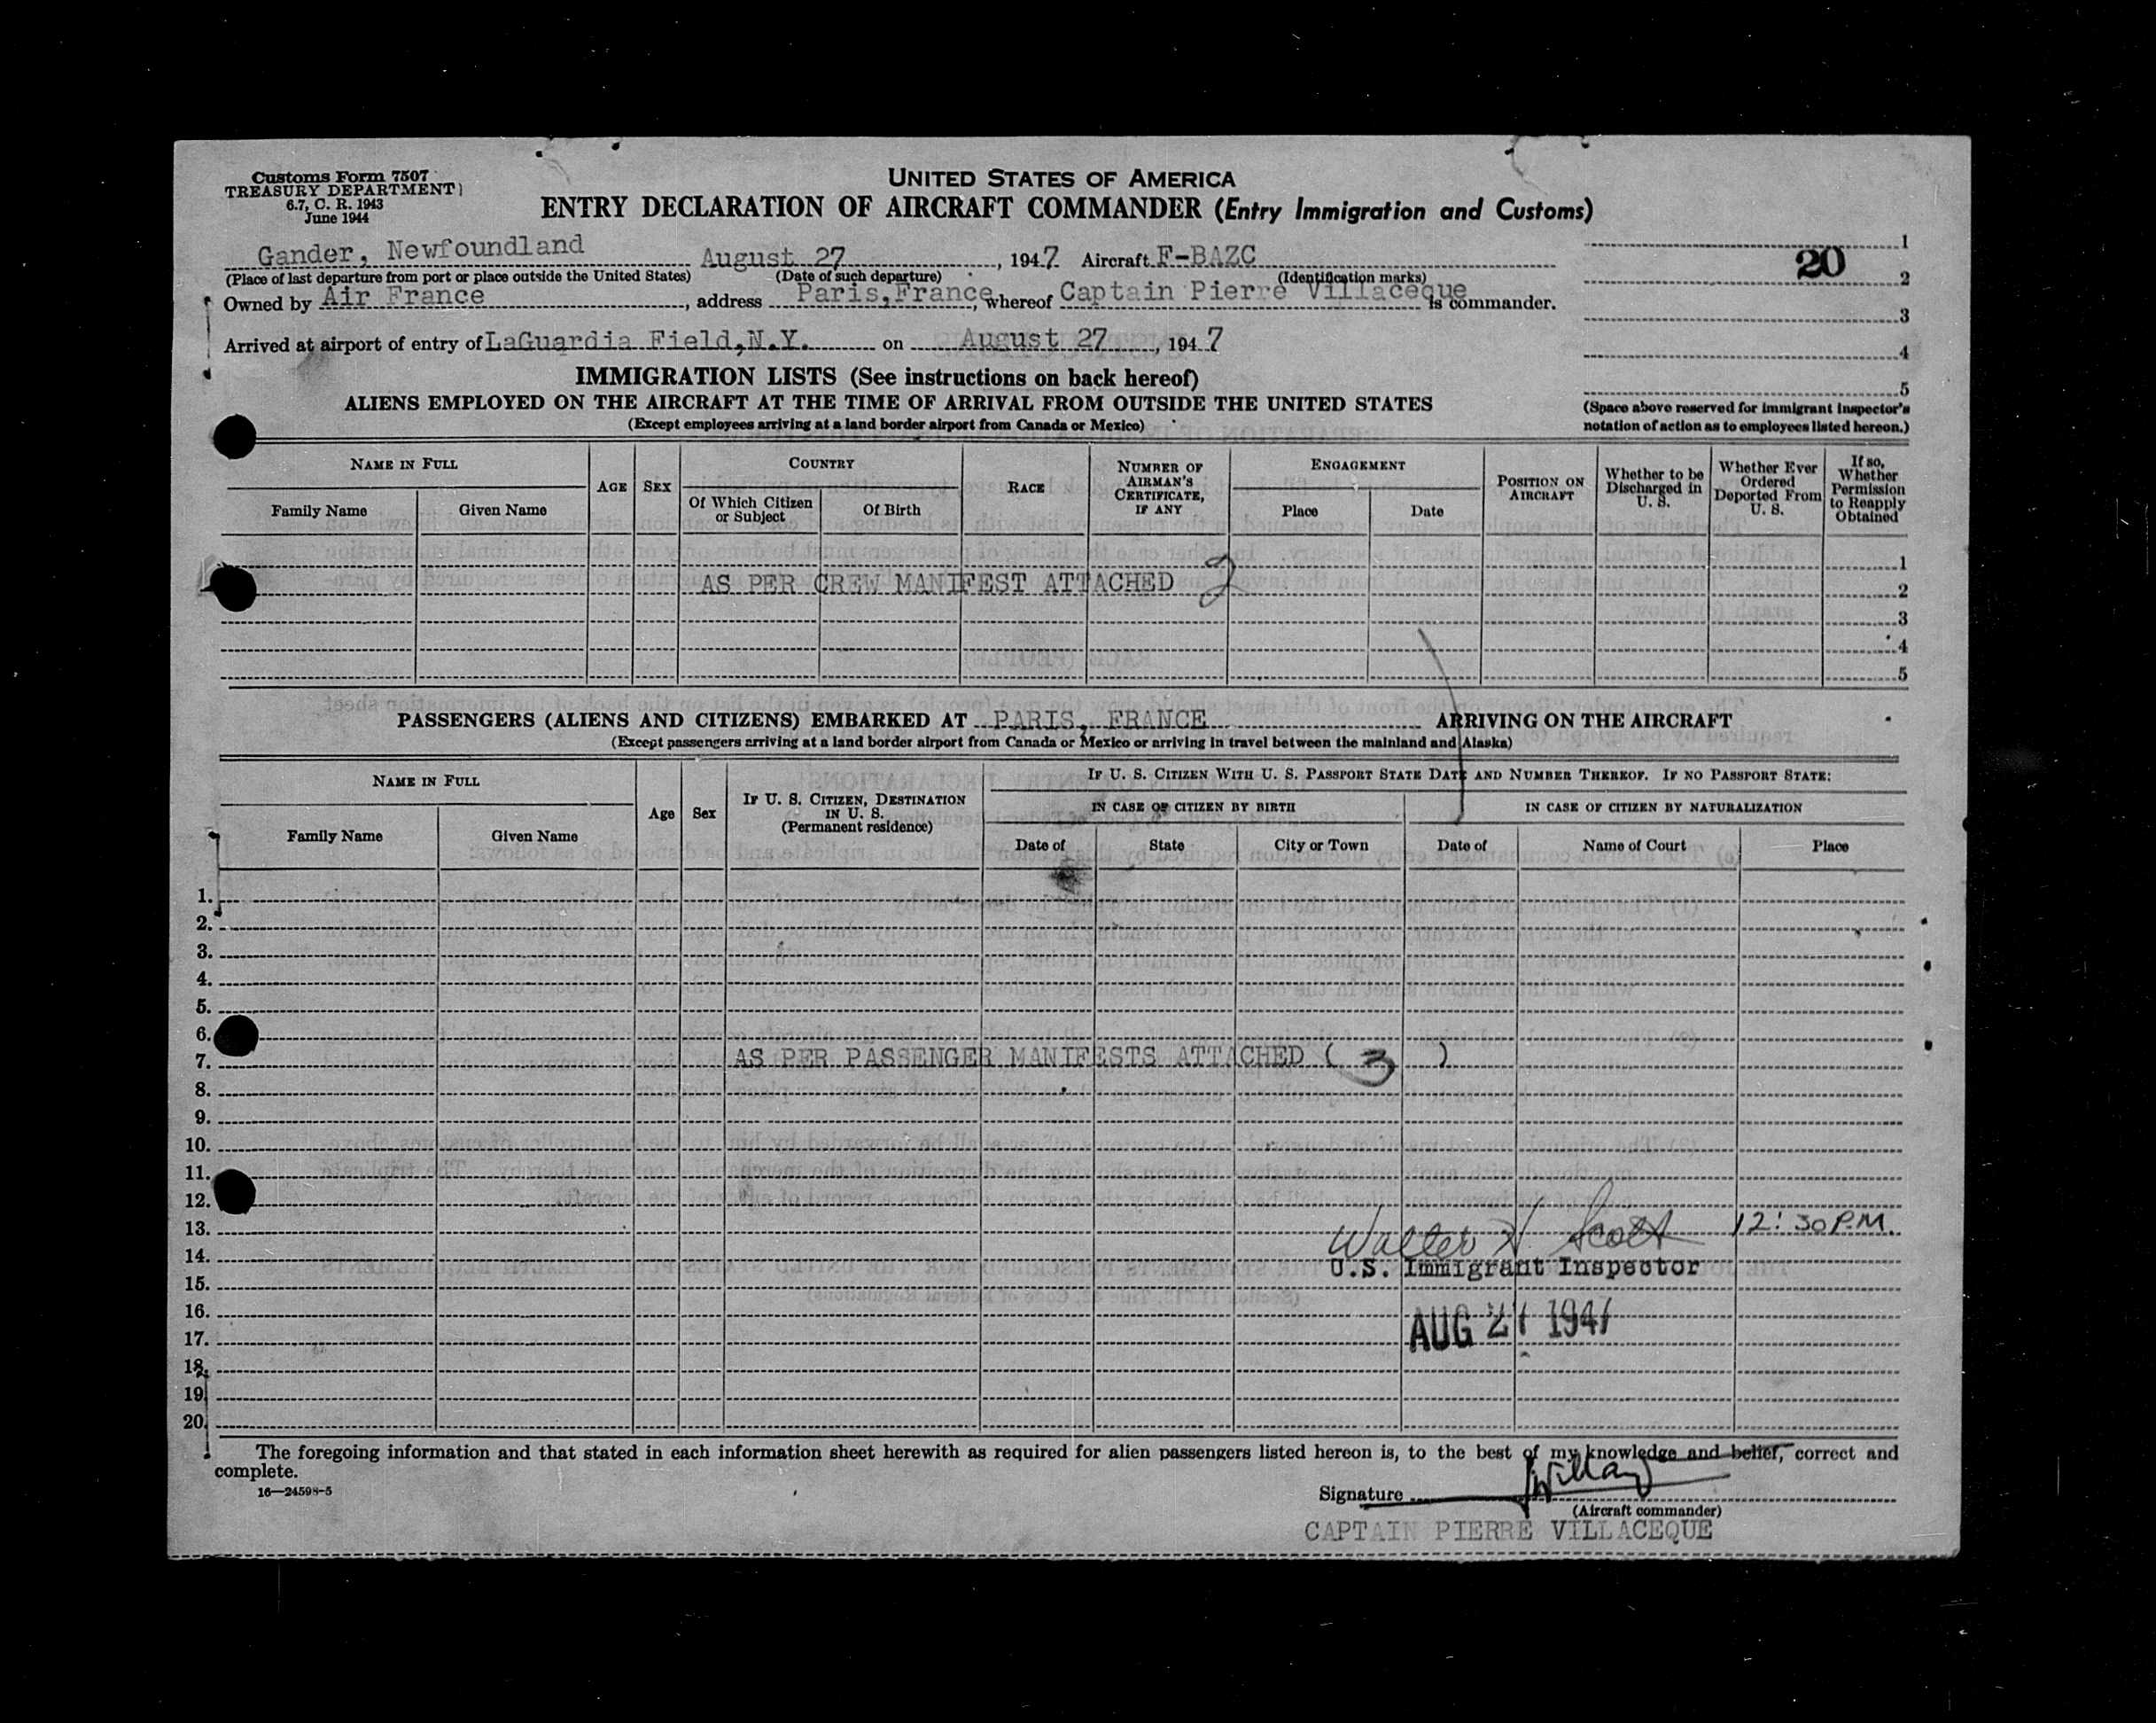 Customs Form 7507
TREASURY DEPARTMENT
6.7, C. R. 1943
June 1944
UNITED STATES OF AMERICA
ENTRY DECLARATION OF AIRCRAFT COMMANDER (Entry Immigration and Customs)
Gander, Newfoundland August 27, 1947 Aircraft F-BAZC
(Place of last departure from port or place outside the United States) (Date of such departure) (Identification marks)
Owned by Air France, address Paris, France, whereof Captain Pierre Villaceque is commander.
Arrived at airport of entry of LaGuardia Field, N.Y. on August 27, 1947
1
20
2
3
4
5
(Space above reserved for immigrant inspector's
notation of action as to employees listed hereon.)
IMMIGRATION LISTS (See instructions on back hereof)
ALIENS EMPLOYED ON THE AIRCRAFT AT THE TIME OF ARRIVAL FROM OUTSIDE THE UNITED STATES
(Except employees arriving at a land border airport from Canada or Mexico)
NAME IN FULL
Family Name
Given Name
AGE
SEX
COUNTRY
Of Which Citizen
or Subject
Of Birth
RACE
NUMBER OF
AIRMAN'S
CERTIFICATE,
IF ANY
ENGAGEMENT
Place
Date
POSITION ON
AIRCRAFT
Whether to be
Discharged in
U. S.
Whether Ever
Ordered
Deported From
U. S.
If so,
Whether
Permission
to Reapply
Obtained
1
AS PER CREW MANIFEST ATTACHED 2
2
3
4
5
PASSENGERS (ALIENS AND CITIZENS) EMBARKED AT PARIS, FRANCE ARRIVING ON THE AIRCRAFT
(Except passengers arriving at a land border airport from Canada or Mexico or arriving in travel between the mainland and Alaska)
NAME IN FULL
Family Name
Given Name
Age
Sex
IF U. S. CITIZEN, DESTINATION
IN U. S.
(Permanent residence)
IF U. S. CITIZEN WITH U. S. PASSPORT STATE DATE AND NUMBER THEREOF. IF NO PASSPORT STATE:
IN CASE OF CITIZEN BY BIRTH
Date of
State
City or Town
IN CASE OF CITIZEN BY NATURALIZATION
Date of
Name of Court
Place
1.
2.
3.
4.
5.
6.
7. AS PER PASSENGER MANIFESTS ATTACHED ( 3 )
8.
9.
10.
11.
12.
13. Walter H Scott 12:30 P.M.
14. U.S. Immigrant Inspector
15.
16. AUG 27 1947
17.
18.
19.
20.
The foregoing information and that stated in each information sheet herewith as required for alien passengers listed hereon is, to the best of my knowledge and belief, correct and
complete.
16—24598-5
Signature
(Aircraft commander)
CAPTAIN PIERRE VILLACEQUE